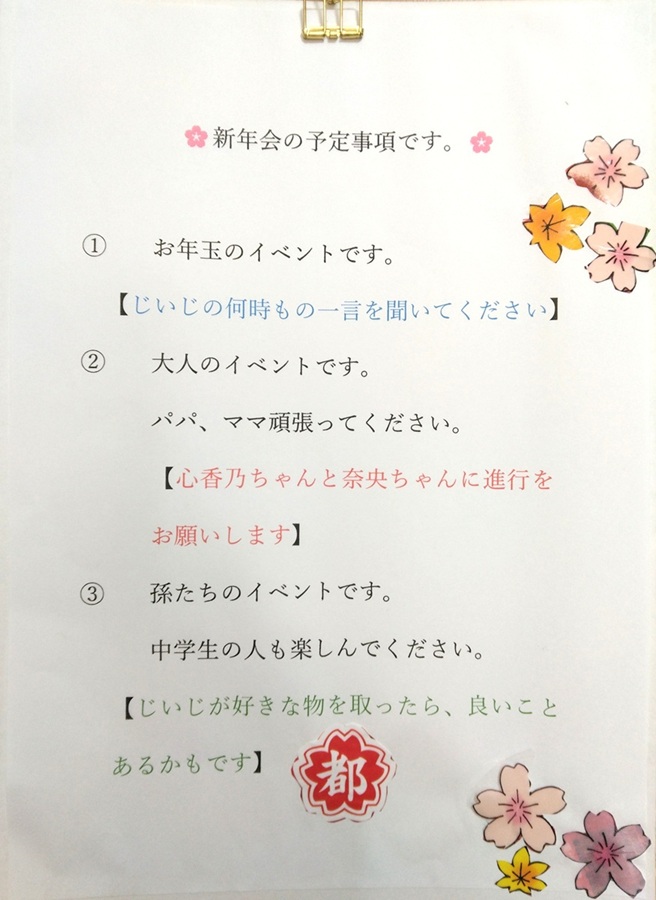 新年会の予定事項です。
① お年玉のイベントです。
【じいじの何時もの一言を聞いてください】
② 大人のイベントです。
パパ、ママ頑張ってください。
【心香乃ちゃんと奈央ちゃんに進行を
お願いします】
③ 孫たちのイベントです。
中学生の人も楽しんでください。
【じいじが好きな物を取ったら、良いこと
あるかもです】
都